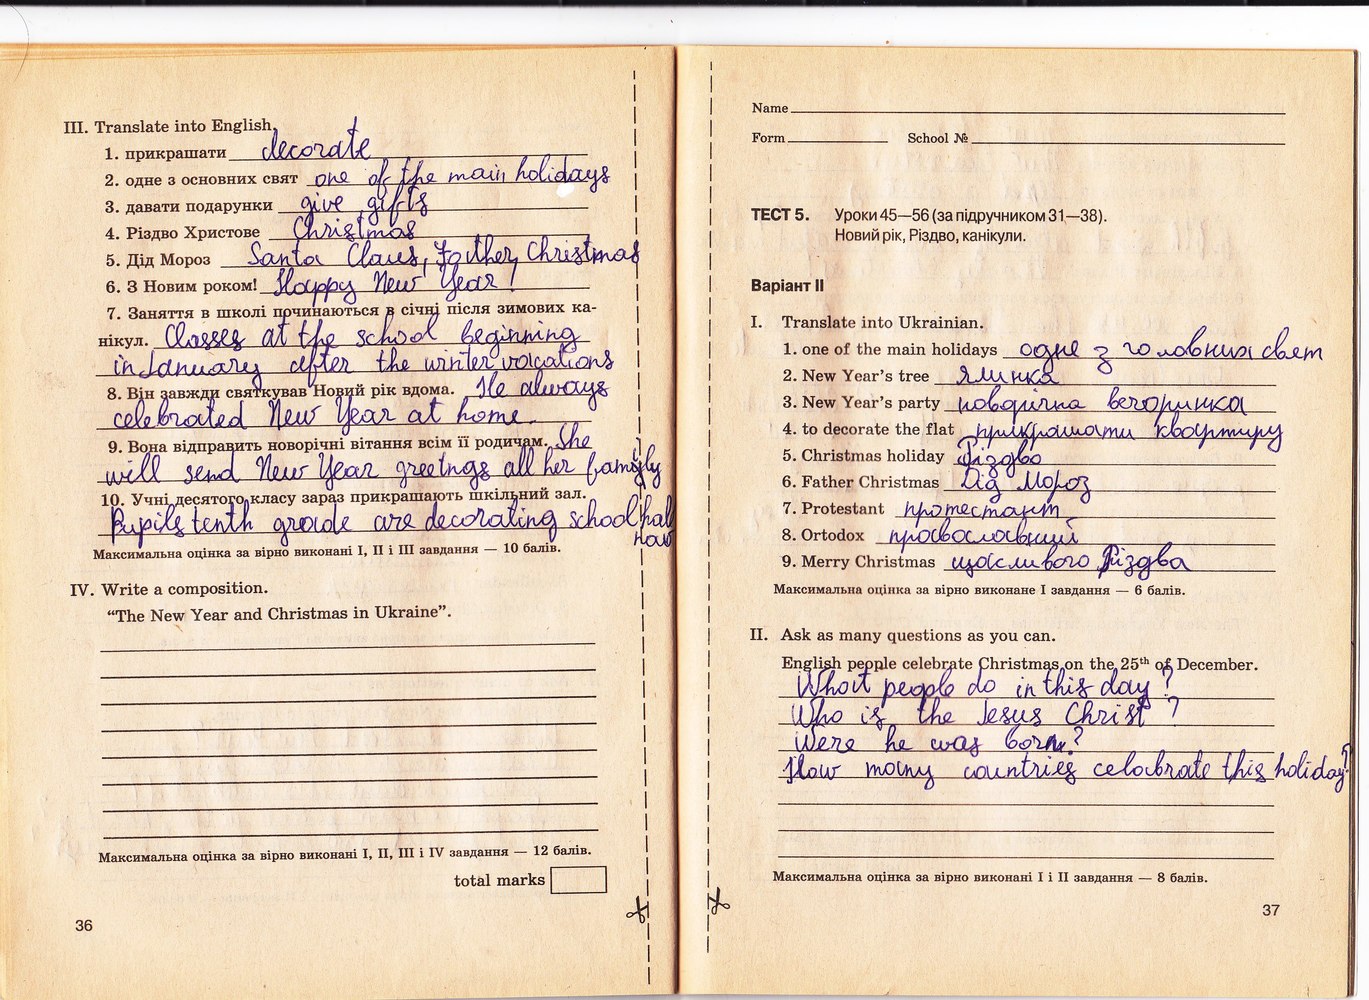 III. Translate into English.
1. прикрашати decorate
2. одне з основних свят one of the main holidays
3. давати подарунки give gifts
4. Різдво Христове Christmas
5. Дід Мороз Santa Claus, Father Christmas
6. З Новим роком! Happy New Year!
7. Заняття в школі починаються в січні після зимових ка-
нікул. Classes at the school beginning
in January after the winter vacations
8. Він завжди святкував Новий рік вдома. He always
celebrated New Year at home.
9. Вона відправить новорічні вітання всім її родичам. She
will send New Year greetngs all her family
10. Учні десятого класу зараз прикрашають шкільний зал.
Pupils tenth grade are decorating school hall
now
Максимальна оцінка за вірно виконані I, II і III завдання — 10 балів.
IV. Write a composition.
“The New Year and Christmas in Ukraine”.
Максимальна оцінка за вірно виконані I, II, III і IV завдання — 12 балів.
total marks
36
Name
Form School №
ТЕСТ 5. Уроки 45—56 (за підручником 31—38).
Новий рік, Різдво, канікули.
Варіант II
I. Translate into Ukrainian.
1. one of the main holidays одне з головних свят
2. New Year’s tree ялинка
3. New Year’s party новорічна вечоринка
4. to decorate the flat прикрашати квартиру
5. Christmas holiday Різдво
6. Father Christmas Дід Мороз
7. Protestant протестант
8. Ortodox православний
9. Merry Christmas щасливого Різдва
Максимальна оцінка за вірно виконане I завдання — 6 балів.
II. Ask as many questions as you can.
English people celebrate Christmas on the 25th of December.
What people do in this day?
Who is the Jesus Christ?
Were he was born?
How many countries celabrate this holiday?
Максимальна оцінка за вірно виконані I і II завдання — 8 балів.
37